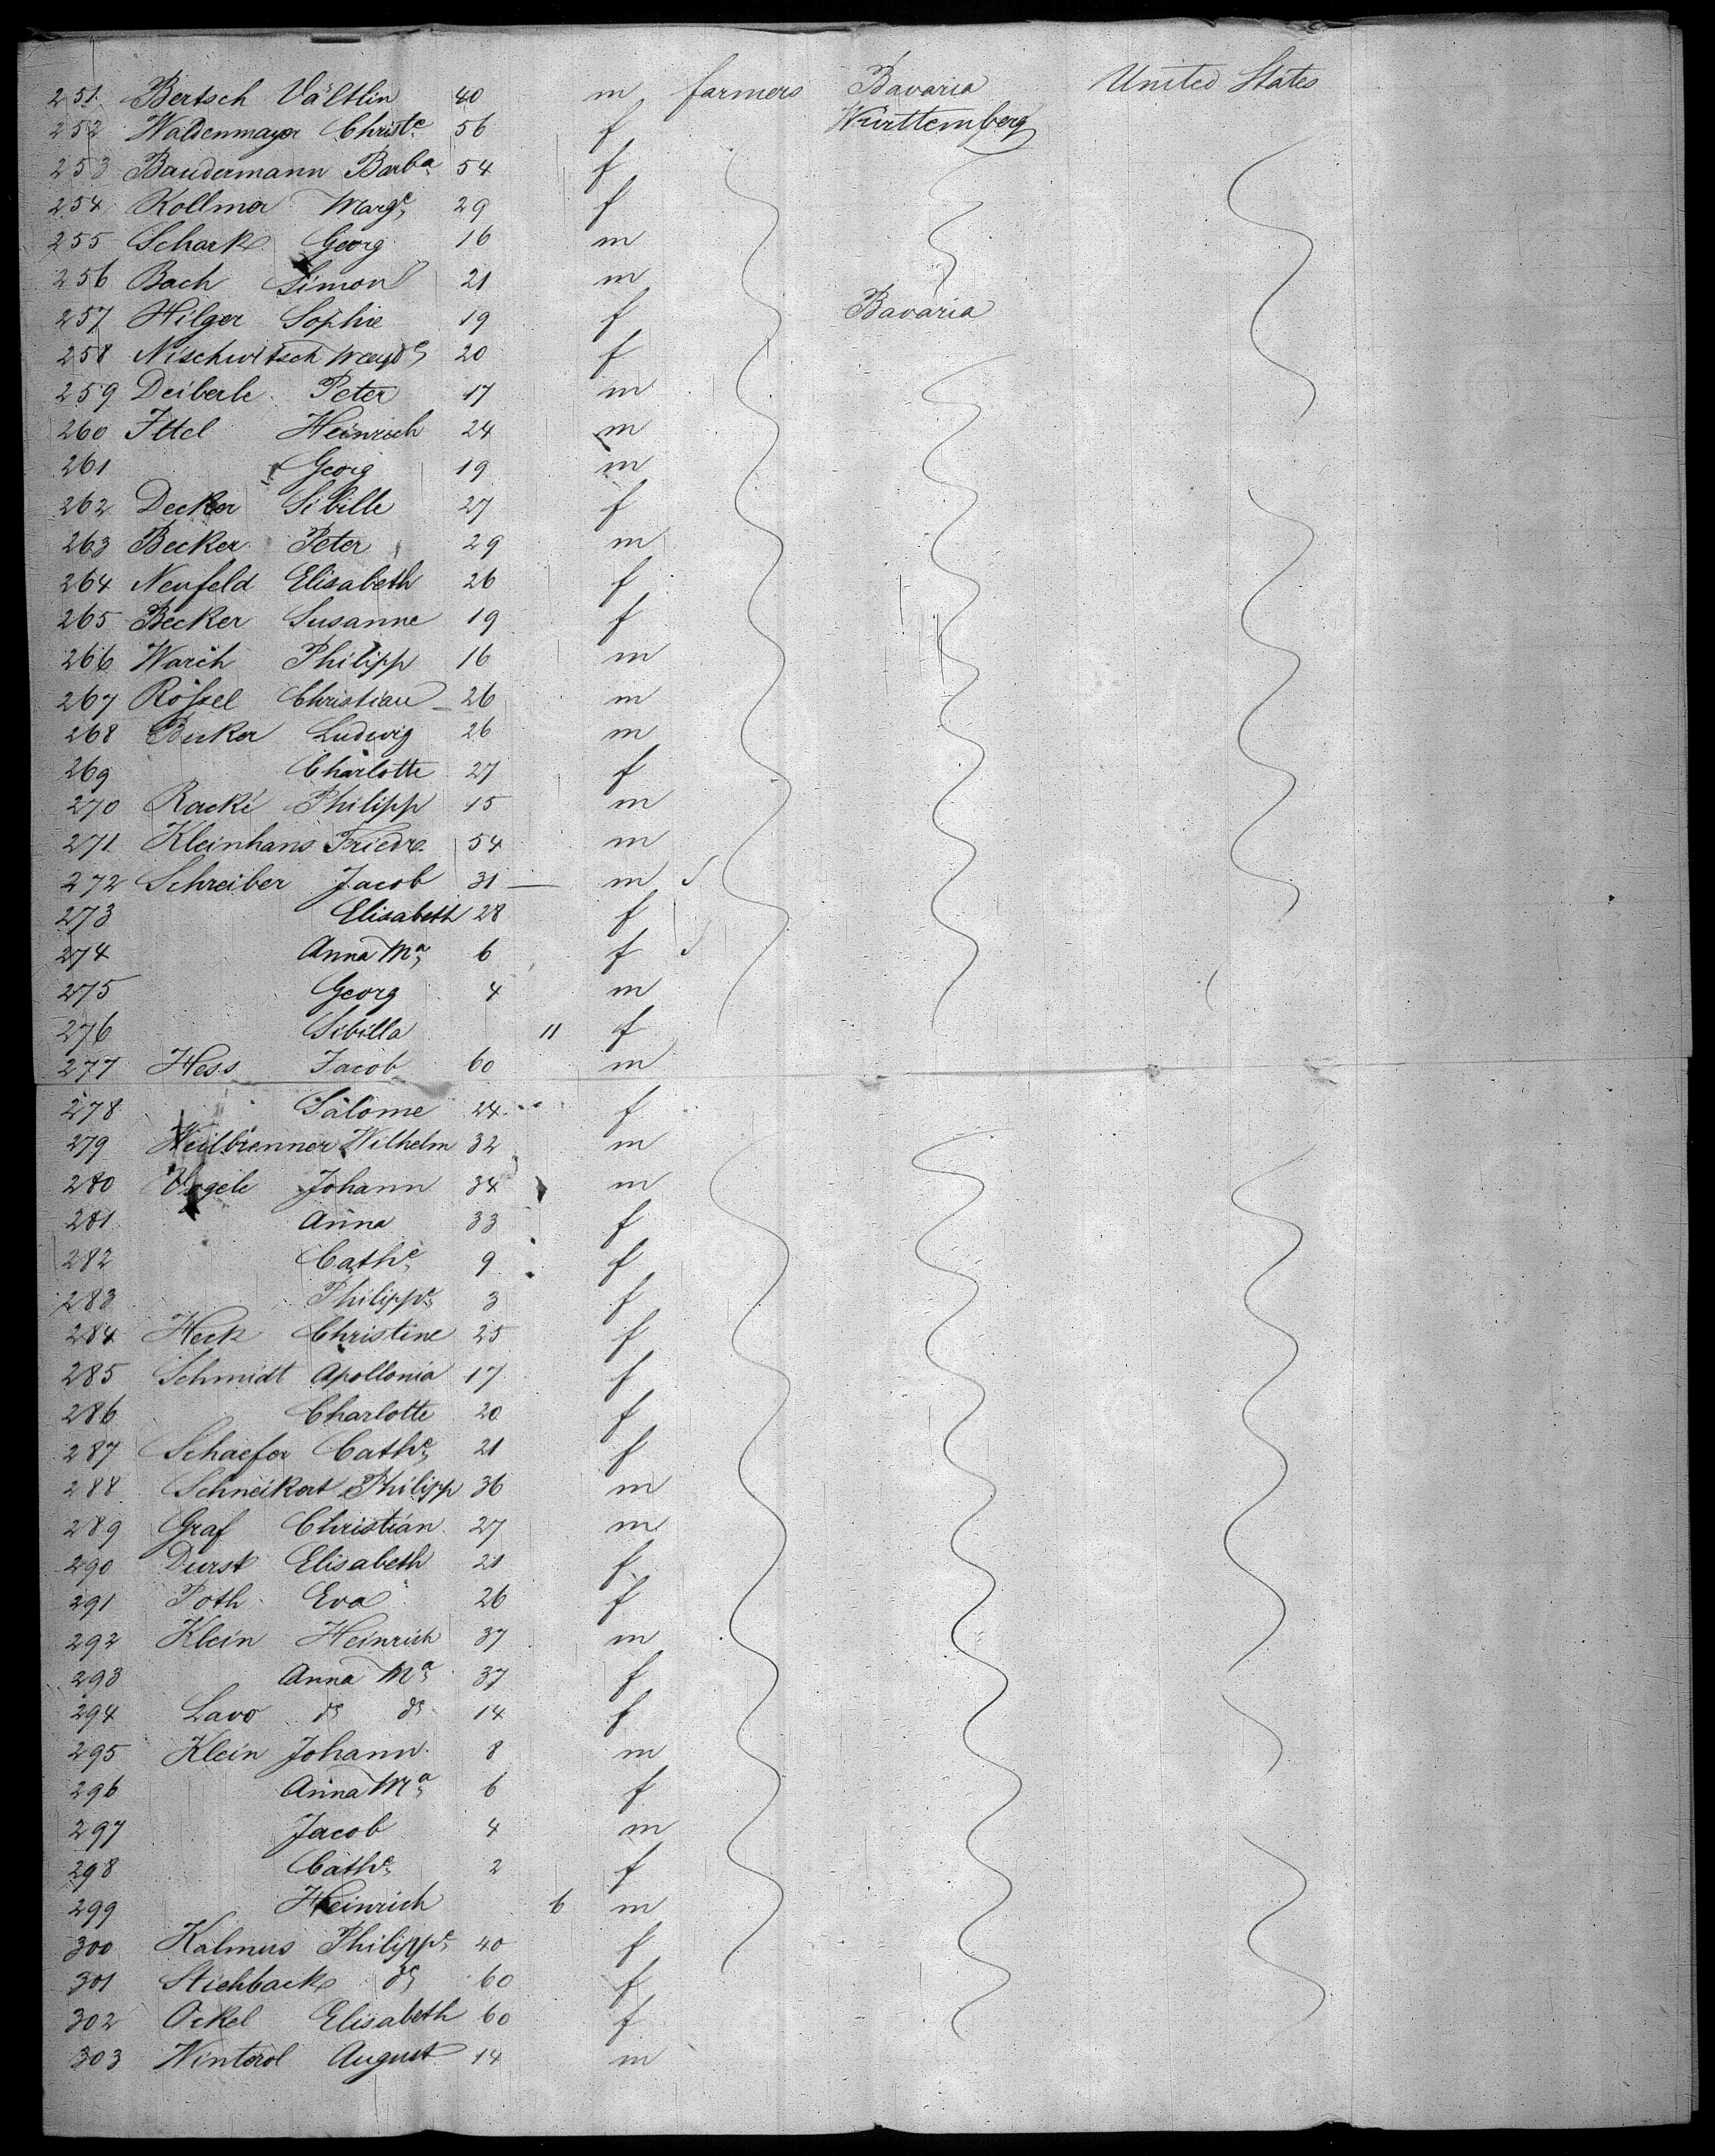 251 Bertsch Vältlin 40 m farmers Bavaria United States
252 Waldenmayer Christe 56 f Württemberg
253 Baudermann Barba 54 f
254 Kollmer Marge 29 f
255 Schark Georg 16 m
256 Bach Simon 21 m
257 Hilger Sophie 19 f Bavaria
258 Nischwitsch 20 f
259 Deiberle Peter 17 m
260 Ittel Heinrich 24 m
261 Georg 19 m
262 Decker Sibille 27 f
263 Becker Peter 29 m
264 Neufeld Elisabeth 26 f
265 Becker Susanne 19 f
266 Warih Philipp 16 m
267 Rössel Christian 26 m
268 Becker Ludwig 26 m
269 Charlotte 27 f
270 Racki Philipp 15 m
271 Kleinhans Friedr. 54 m
272 Schreiber Jacob 31 — m
273 Elisabeth 28 f
274 Anna Ma 6 f
275 Georg 4 m
276 Sibilla 11 f
277 Hess Jacob 60 m
278 Salome 24 f
279 Heilbrenner Wilhelm 32 m
280 Vogele Johann 34 m
281 Anna 33 f
282 Cathe 9 f
283 Philippe 3 f
284 Heck Christine 25 f
285 Schmidt Apollonia 17 f
286 Charlotte 20 f
287 Schaefer Cathe 21 f
288 Schneikert Philipp 36 m
289 Graf Christian 27 m
290 Durst Elisabeth 21 f
291 Poth Eva 26 f
292 Klein Heinrich 37 m
293 Anna Ma 37 f
294 Lavo do do 14 f
295 Klein Johann 8 m
296 Anna Ma 6 f
297 Jacob 4 m
298 Cathe 2 f
299 Heinrich 6 m
300 Kalmus Philippe 40 f
301 Stichback do 60 f
302 Ockel Elisabeth 60 f
303 Winterol August 14 m